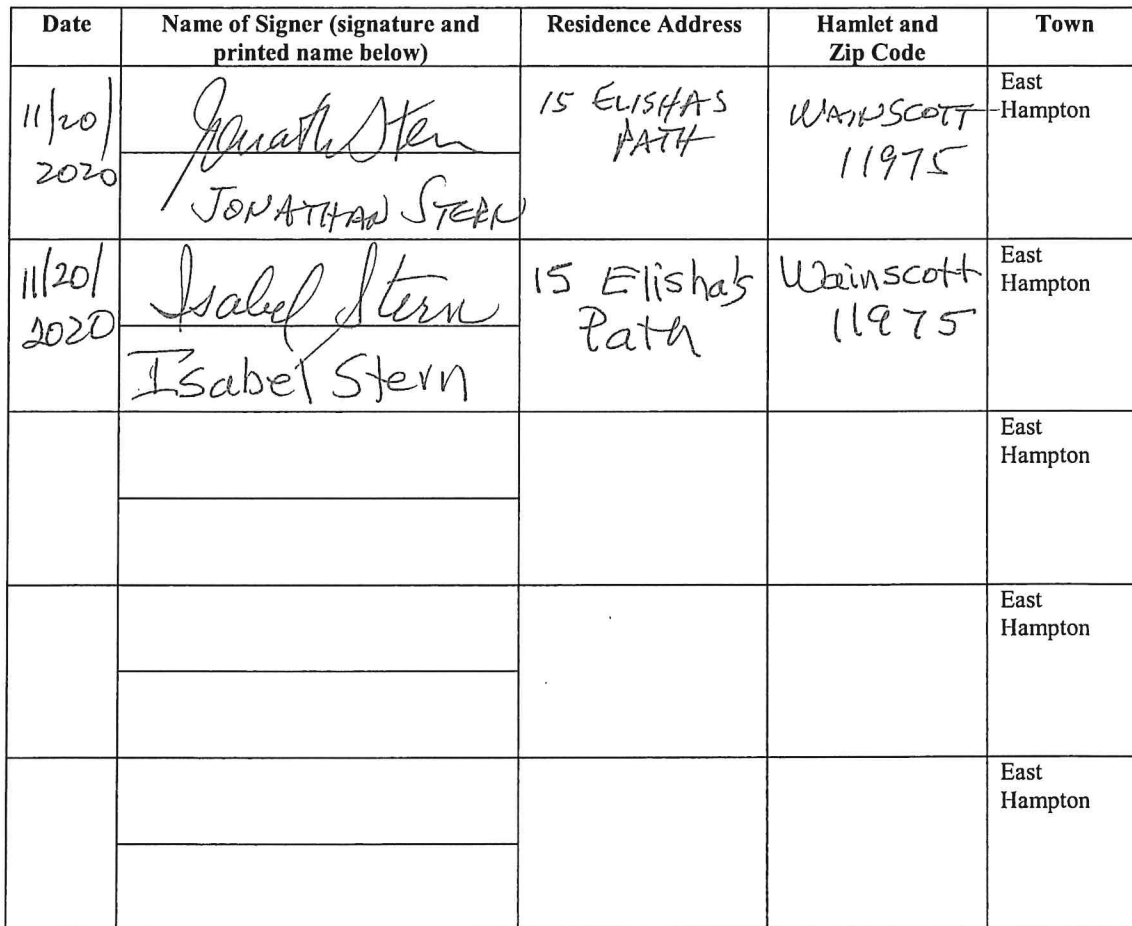 Date
Name of Signer (signature and
printed name below)
Residence Address
Hamlet and
Zip Code
Town
11/20/
2020
Jonath Stern
JONATHAN STERN
15 ELISHAS
PATH
WAINSCOTT
11975
East
Hampton
11/20/
2020
Isabel Stern
Isabel Stern
15 Elisha's
Path
Wainscott
11975
East
Hampton
East
Hampton
East
Hampton
East
Hampton